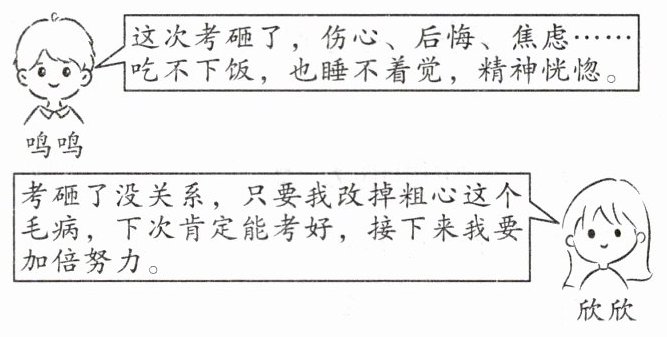 这次考砸了，伤心、后悔、焦虑……
吃不下饭，也睡不着觉，精神恍惚。
鸣鸣
考砸了没关系，只要我改掉粗心这个
毛病，下次肯定能考好，接下来我要
加倍努力。
欣欣